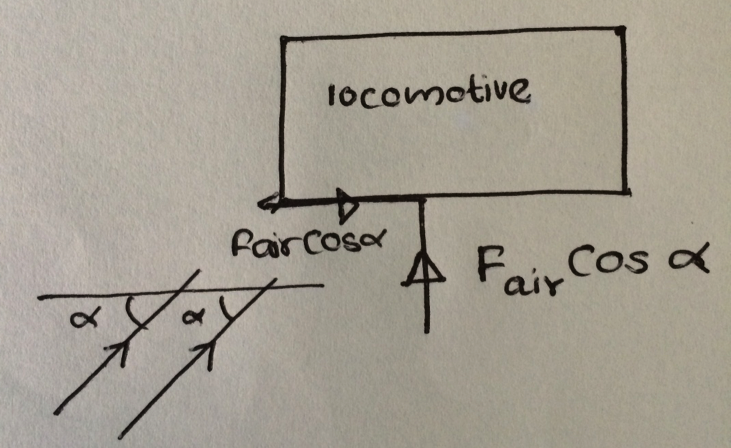 locomotive
FairCosα
Fair Cos α
α α